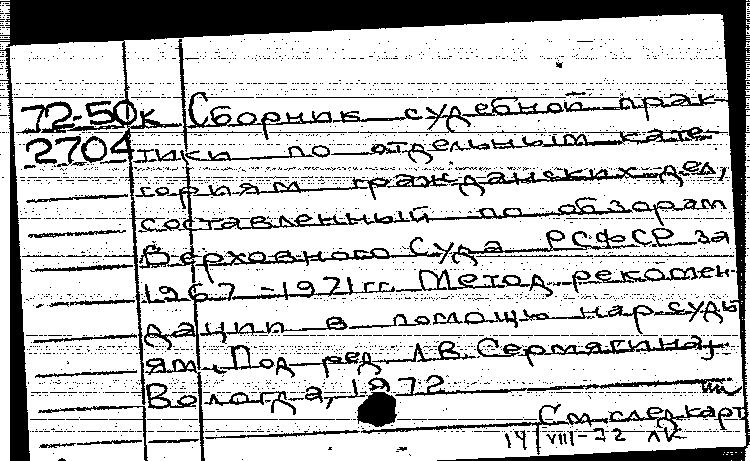 72-50к Сборник судебной прак-
2704 тики по отдельным кате-
гориям гражданских дел,
составленный по обзорам
Верховного Суда РСФСР за
1967-1971 гг. Метод. рекомен-
дации в помощь нар. судь
ям. Под ред. Л.В. Сермягина,
Вологда, 1972
См. след. карт
14/VIII-72 ЛК